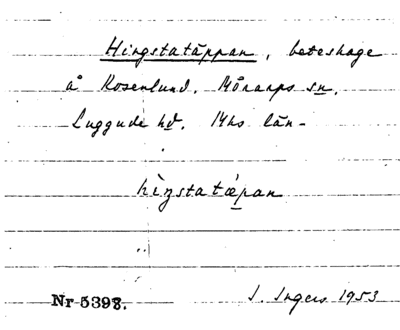 Hingstatäppan, beteshage
å Rosenlund. Mörarps sn.
Luggude hd. Mhs län.
hìŋstatæ̀pan
Nr 5398. I. Ingers 1953